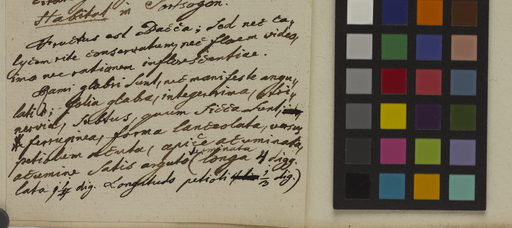 Habitat in
Fructus est Bacca; sed nec ca-
lycem rite conservatum, nec florem video,
imo nec rationem inflorescentiae.
Rami glabri sunt, nec manifeste angu-
lati; folia glabra, integerrima, tri-
nervia, subtus, quum sicca sunt,
ferruginea, forma lanceolata, versus
petiolum acuta, apice acuminata,
terminata
acumine satis arguto (longa 4 digg.
lata 1 1/4 dig. Longitudo petioli 1/3 dig.)